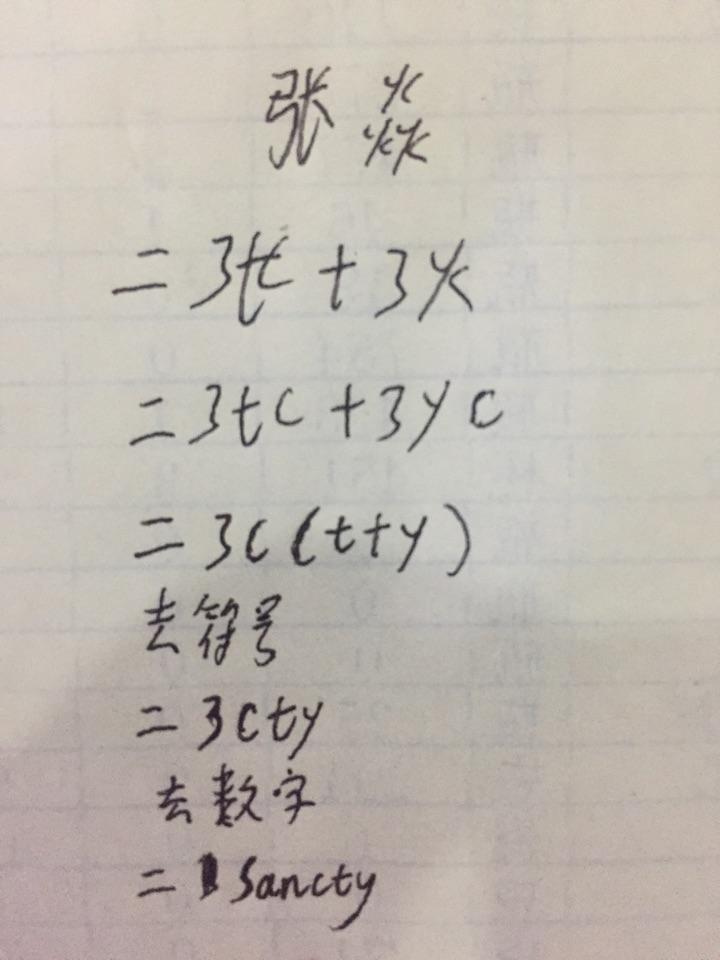 张焱
=3tc+3yc
=3tc+3yc
=3c(t+y)
去符号
=3cty
去数字
=Sancty